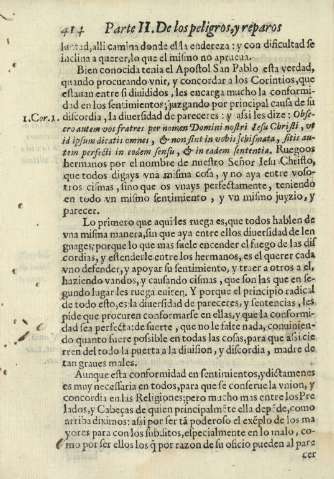 414 Parte II. De los peligros, y reparos
luntad, alli camina donde ella endereza: y con dificultad se
inclina a querer, lo que el mismo no aprueua.
Bien conocida tenia el Apostol San Pablo esta verdad,
quando procurando vnir, y concordar a los Corintios, que
estauan entre si diuididos, les encarga mucho la conformi-
dad en los sentimientos; juzgando por principal causa de su
1.Cor.1. discordia, la diuersidad de pareceres: y assi les dize: Obse-
cro autem vos fratres per nomen Domini nostri Iesu Christi, vt
id ipsum dicatis omnes, & non sint in vobis schismata, sitis au-
tem perfecti in eodem sensu, & in eadem sententia. Ruegoos
hermanos por el nombre de nuestro Señor Iesu Christo,
que todos digays vna misma cosa, y no aya entre voso-
tros cismas, sino que os vnays perfectamente, teniendo
en todo vn mismo sentimiento, y vn mismo juyzio, y
parecer.
Lo primero que aqui les ruega es, que todos hablen de
vna misma manera, sin que aya entre ellos diuersidad de len
guages; porque lo que mas suele encender el fuego de las dis
cordias, y estenderle entre los hermanos, es el querer cada
vno defender, y apoyar su sentimiento, y traer a otros a el,
haziendo vandos, y causando cismas, que son las que en se-
gundo lugar les ruega euiten. Y porque el principio radical
de todo esto, es la diuersidad de pareceres, y sentencias, les
pide que procuren conformarse en ellas, y que la conformi-
dad sea perfecta: de suerte, que no le falte nada, conuinien-
do quanto fuere possible en todas las cosas, para que assi cie
rren del todo la puerta a la diuision, y discordia, madre de
tan graues males.
Aunque esta conformidad en sentimientos, y dictamenes
es muy necessaria en todos, para que se conserue la vnion, y
concordia en las Religiones; pero mucho mas entre los Pre
lados, y Cabeças de quien principalmẽte ella depẽde, como
arriba diximos: assi por ser tã poderoso el exẽplo de los ma
yores para con los subditos, especialmente en lo malo, co-
mo por ser ellos los q̃ por razon de su oficio pueden al pare
cer